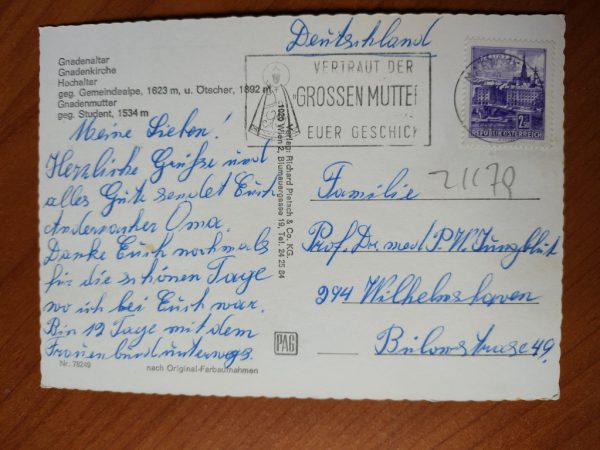 Gnadenaltar
Gnadenkirche
Hochaltar
geg. Gemeindealpe, 1623 m, u. Ötscher, 1892 m
Gnadenmutter
geg. Student, 1534 m
Deutschland
VERTRAUT DER
GROSSEN MUTTE
EUER GESCHIC
2.50
REPUBLIK ÖSTERREICH
Meine Lieben!
Herzliche Grüsse und
alles Gute sendet Euch
Andernacher Oma.
Danke Euch nochmals
für die schönen Tage
wo ich bei Euch war.
Bin 12 Tage mit dem
Frauenbund unterwegs.
Verlag: Richard Pietsch & Co. KG.
1020 Wien 2, Blumauergasse 19, Tel. 24 25 84
Familie
Prof. Dr. med. P. W. Jungblut
294 Wilhelmshaven
Bülowstrase 49
PAG
Nr. 78249
nach Original-Farbaufnahmen